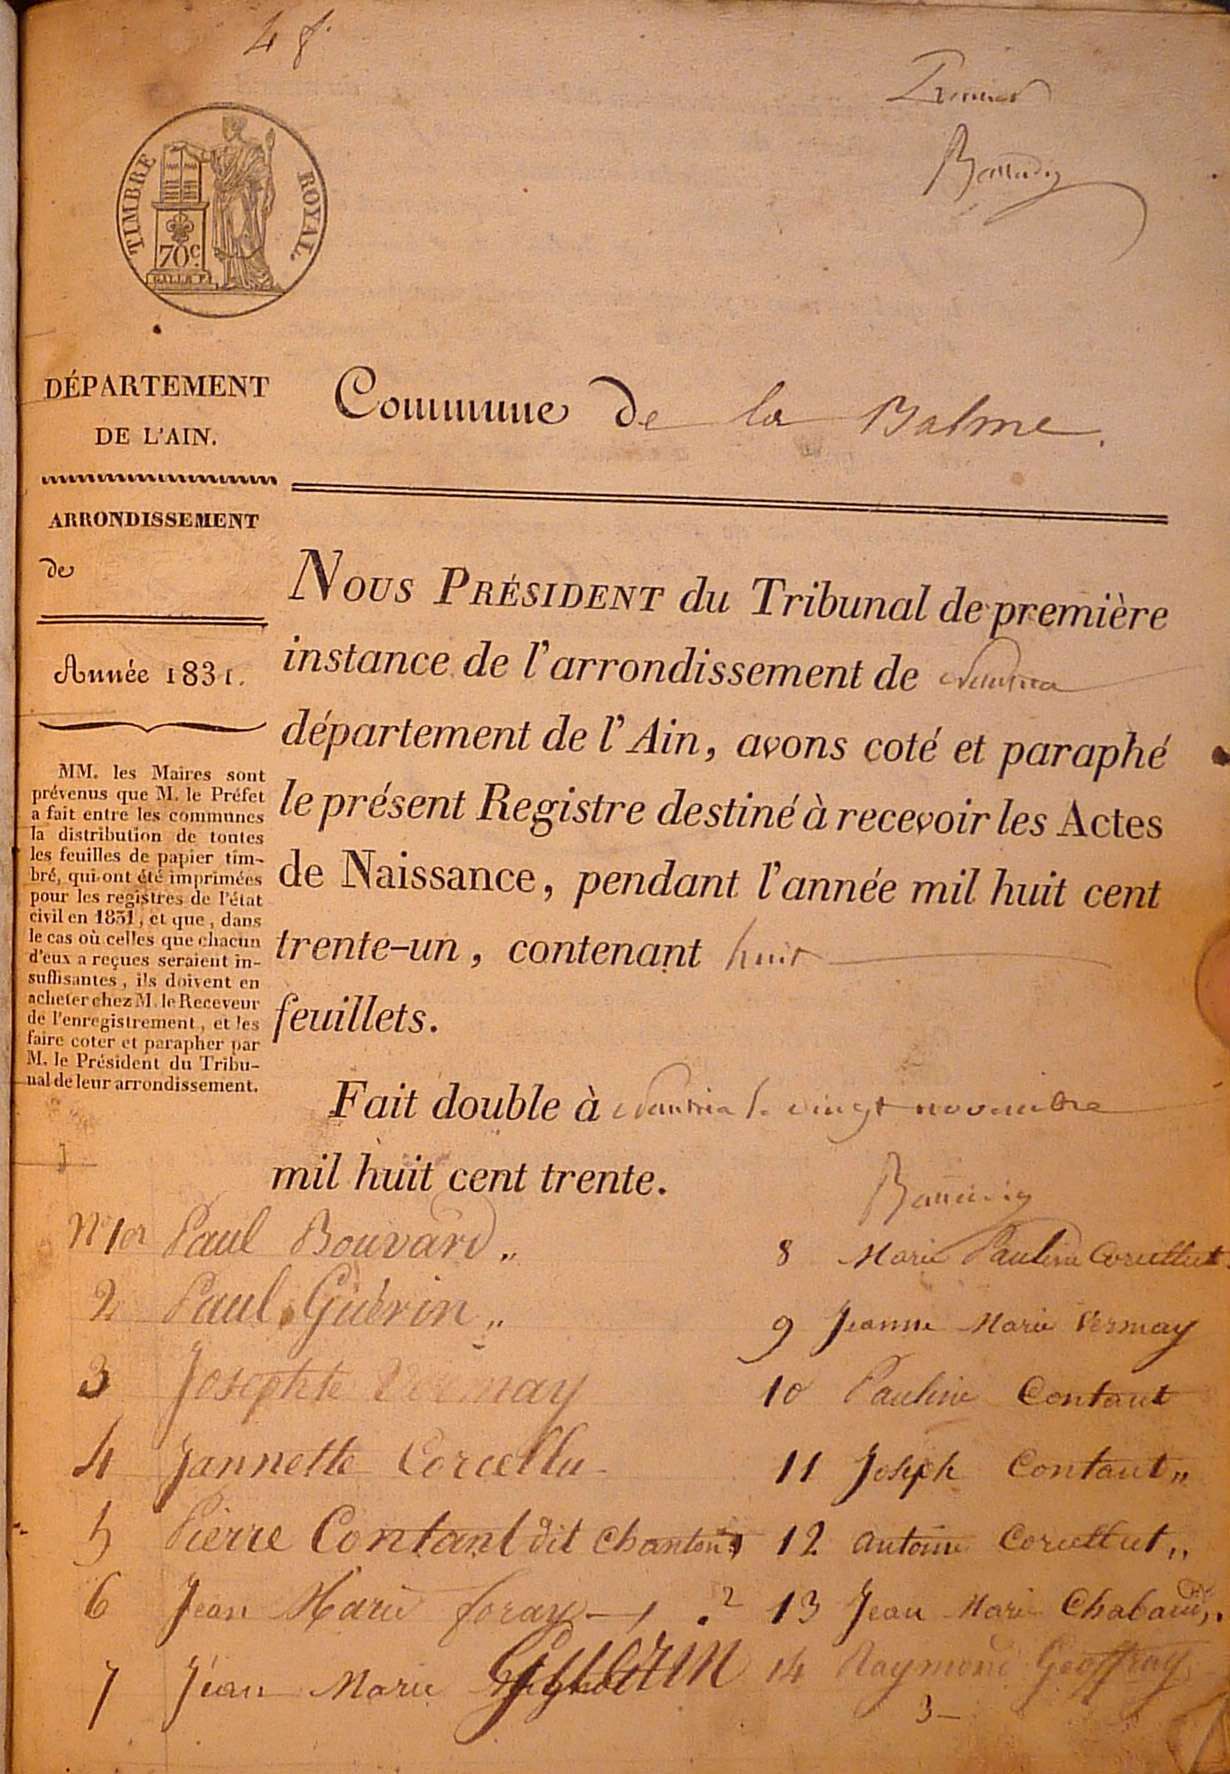 4 f.
Premier
TIMBRE ROYAL.
70c.
GALLE F.
DÉPARTEMENT
DE L'AIN.
ARRONDISSEMENT
de
Année 1831.
MM. les Maires sont
prévenus que M. le Préfet
a fait entre les communes
la distribution de toutes
les feuilles de papier tim-
bré, qui ont été imprimées
pour les registres de l'état
civil en 1831, et que, dans
le cas où celles que chacun
d'eux a reçues seraient in-
suffisantes, ils doivent en
acheter chez M. le Receveur
de l'enregistrement, et les
faire coter et parapher par
M. le Président du Tribu-
nal de leur arrondissement.
Commune de la Balme.
NOUS PRÉSIDENT du Tribunal de première
instance de l'arrondissement de Nantua
département de l'Ain, avons coté et paraphé
le présent Registre destiné à recevoir les Actes
de Naissance, pendant l'année mil huit cent
trente-un, contenant huit
feuillets.
Fait double à Nantua le vingt novembre
mil huit cent trente.
N° 1er Paul Bouvard „
2 Paul Guérin „
3 Josephte Vermay
4 Jannette Corcellu
5 Pierre Contant dit Chanton
6 Jean Marie foray
7 Jéan Marie Guérin
8 Marie Pauline Corcellut
9 Jeanne Marie Vermay
10 Pauline Contant
11 Joseph Contant „
12 Antoine Corcellut „
13 Jean Marie Chabaud
14 Raymond Geoffray
3